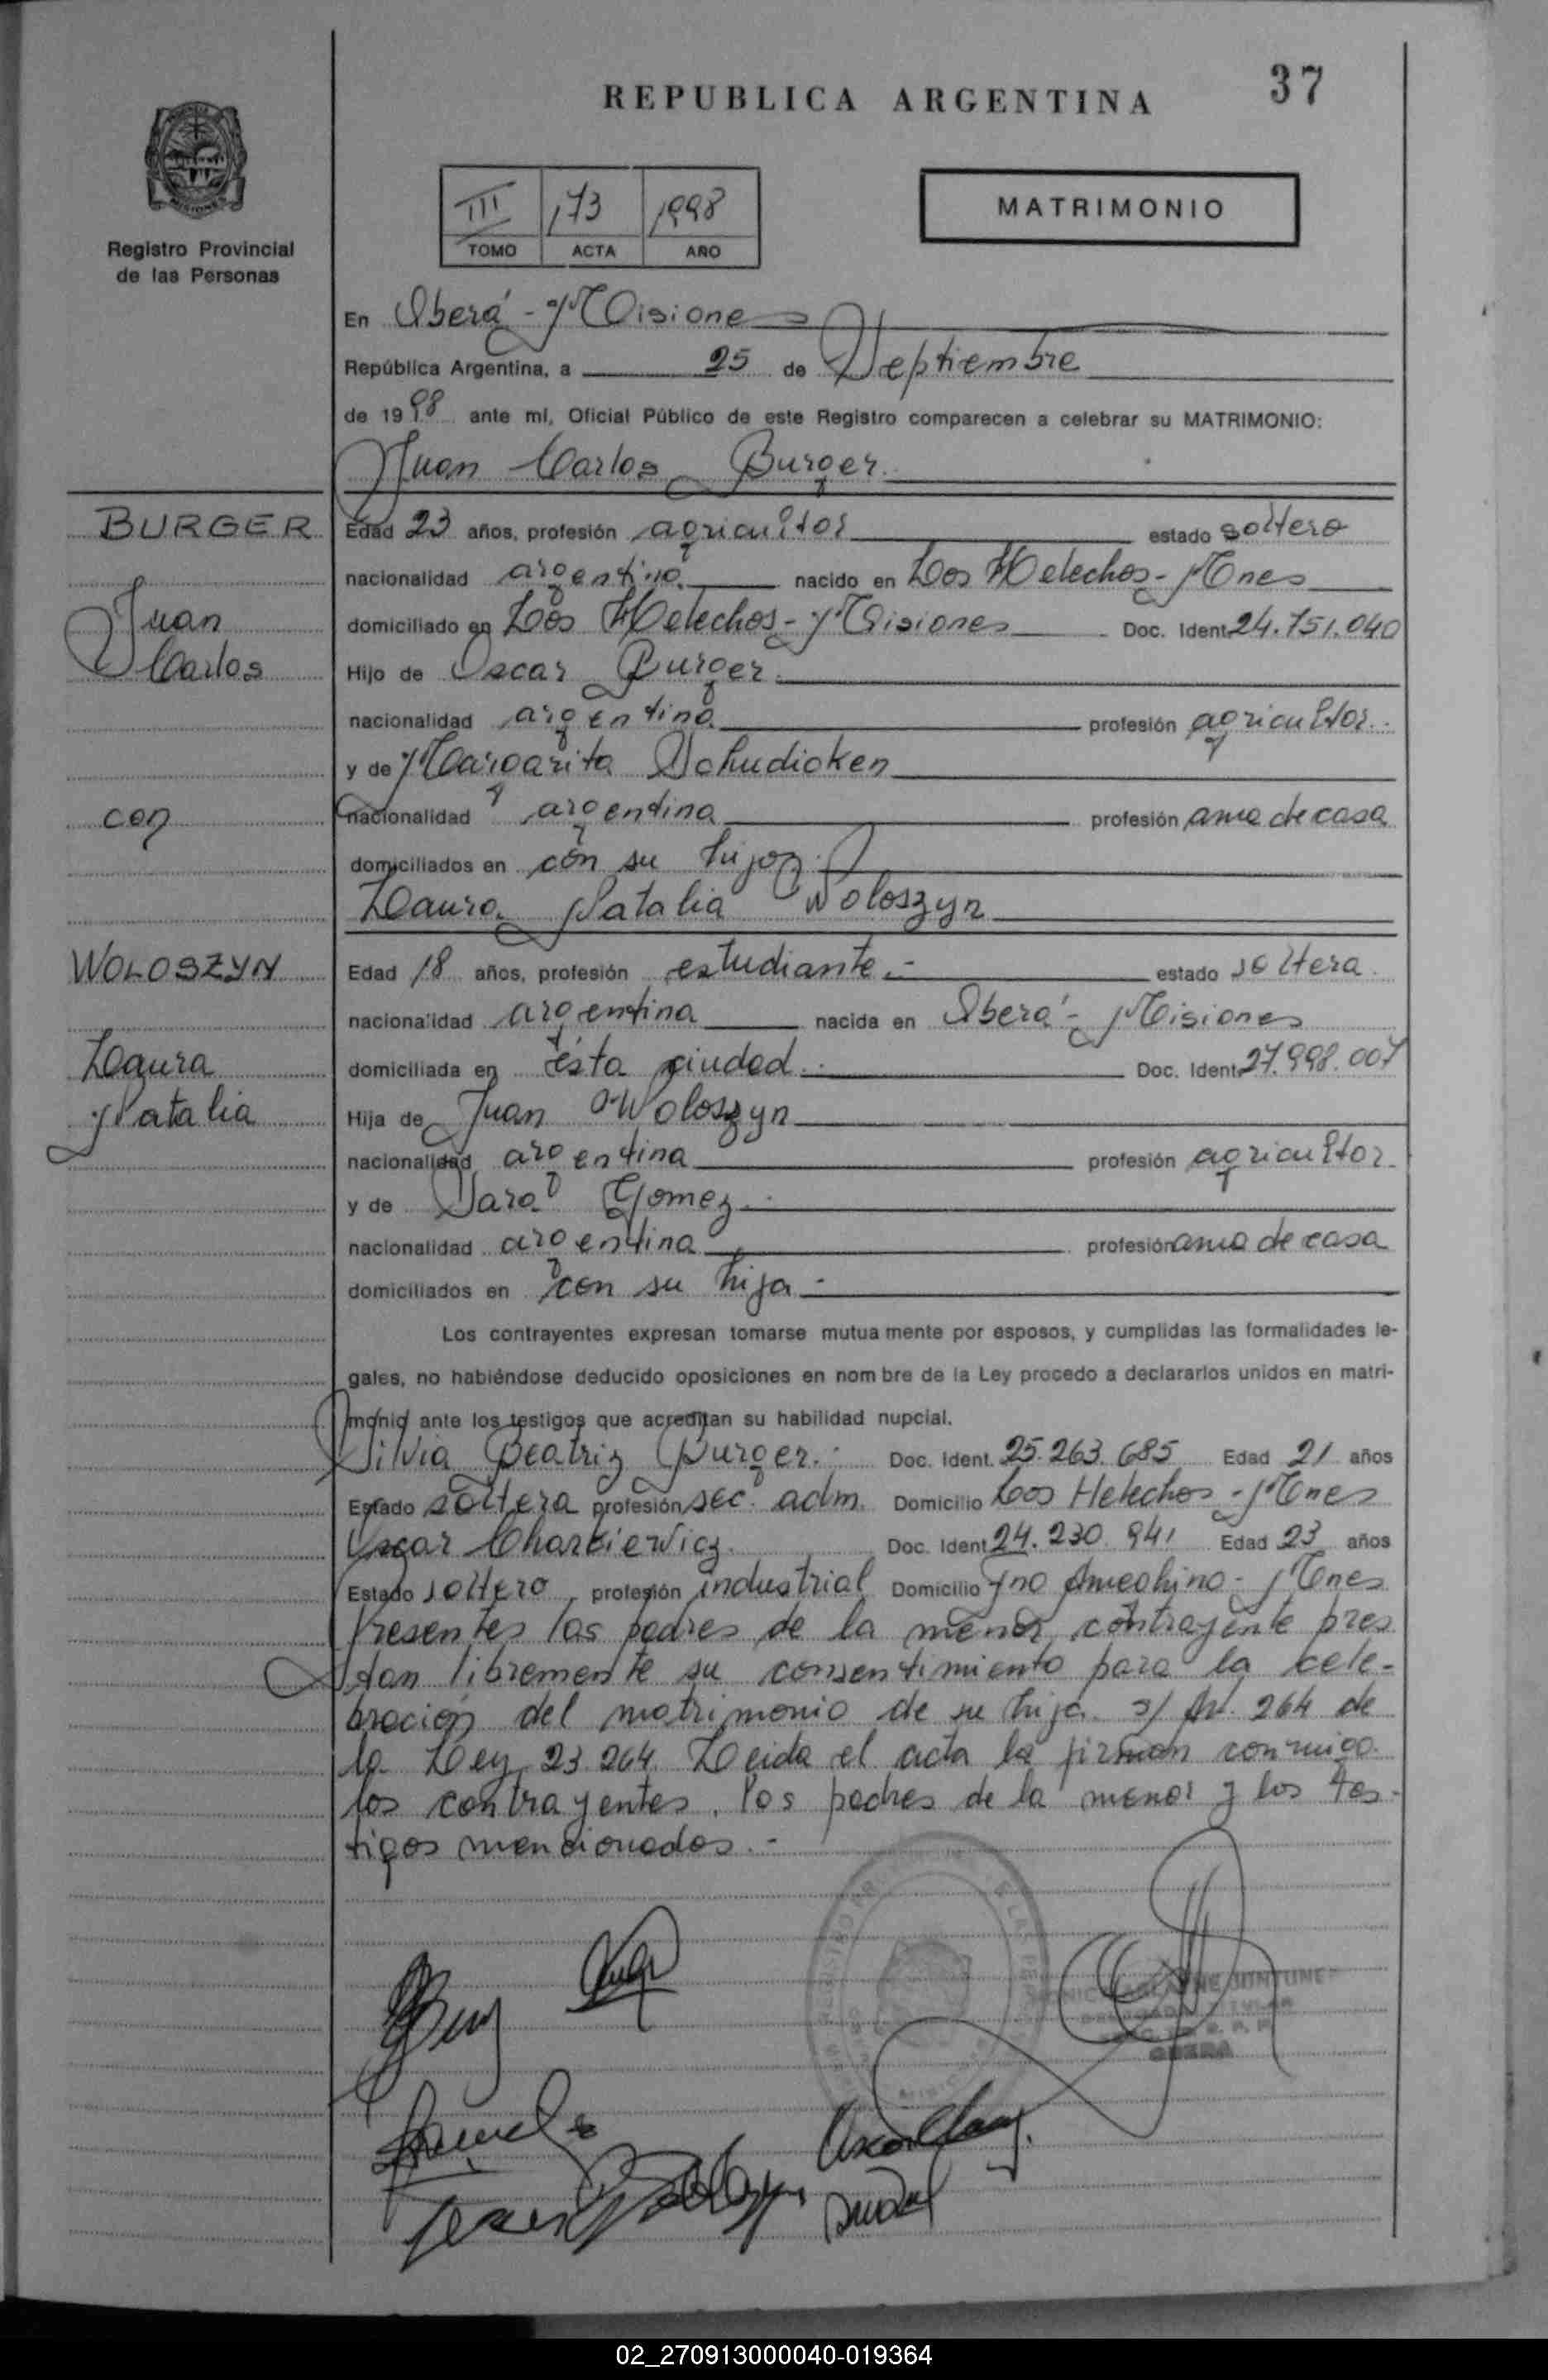 37
REPUBLICA ARGENTINA
III 173 1998
TOMO ACTA AÑO
MATRIMONIO
Registro Provincial
de las Personas
En Oberá - Misiones
República Argentina, a 25 de Septiembre
de 1998 ante mí, Oficial Público de este Registro comparecen a celebrar su MATRIMONIO:
Juan Carlos Burger
BURGER
Juan
Carlos
con
WOLOSZYN
Laura
Natalia
Edad 23 años, profesión agricultor estado soltero
nacionalidad argentina nacido en Los Helechos - Mnes
domiciliado en Los Helechos - Misiones Doc. Ident. 24.751.040
Hijo de Oscar Burger.
nacionalidad argentina profesión agricultor.
y de Margarita Schudicken
nacionalidad argentina profesión ama de casa
domiciliados en con su hijo
Laura Natalia Woloszyn
Edad 18 años, profesión estudiante.- estado soltera
nacionalidad argentina nacida en Oberá - Misiones
domiciliada en ésta ciudad. Doc. Ident. 27.998.007
Hija de Juan Woloszyn
nacionalidad argentina profesión agricultor.
y de Sara Gomez.
nacionalidad argentina profesión ama de casa
domiciliados en con su hija -
Los contrayentes expresan tomarse mutua mente por esposos, y cumplidas las formalidades le-
gales, no habiéndose deducido oposiciones en nom bre de la Ley procedo a declararlos unidos en matri-
monio ante los testigos que acreditan su habilidad nupcial.
Silvia Beatriz Burger. Doc. Ident. 25.263.685 Edad 21 años
Estado soltera profesión sec. adm. Domicilio Los Helechos - Mnes
Oscar Doc. Ident. 24.230.941 Edad 23 años
Estado soltero profesión industrial Domicilio Fno Ameghino - Mnes
Presentes los padres de la menor contrayente pres
tan libremente su consentimiento para la cele-
bración del matrimonio de su hija. s/ Ar. 264 de
la Ley 23.264. Leida el acta la firman conmigo
los contrayentes, los padres de la menor y los tes-
tigos mencionados.-
OBERA
02_270913000040-019364